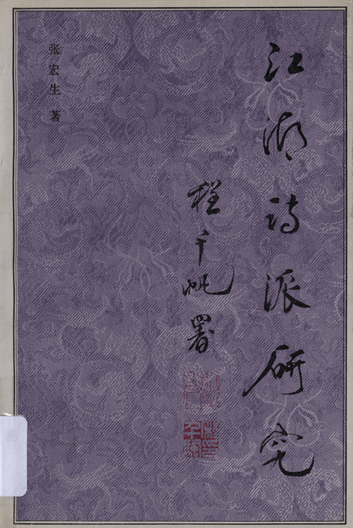 江湖诗派研究
程千帆署
张宏生 著